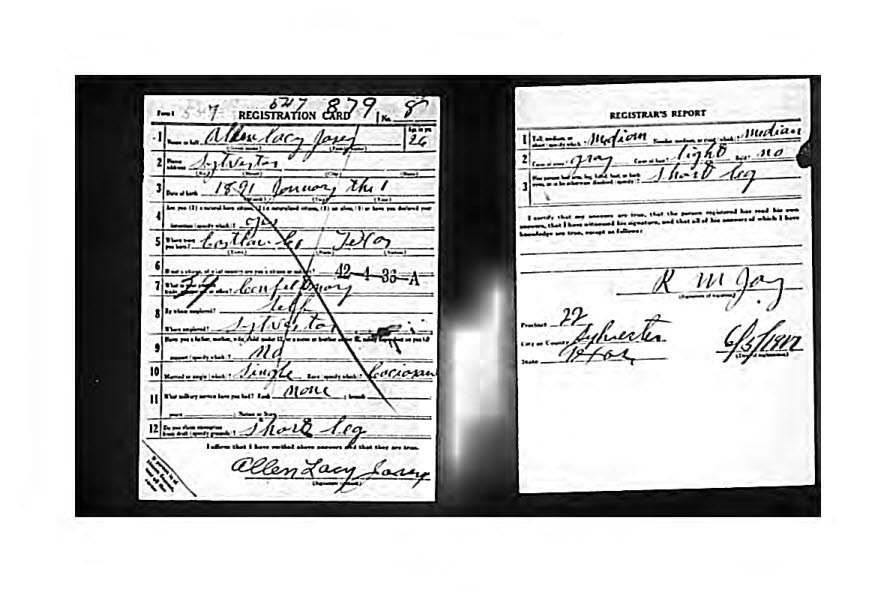 Form 1 547 547 879
REGISTRATION CARD No. 8
1 Name in full Allen Lacy Josey Age in yrs. 26
2 Home address Sylvester
3 Date of birth 1891 January the 1
4 Are you (1) a natural-born citizen, (2) a naturalized citizen, (3) an alien, (4) or have you declared your
intention (specify which)?
5 Where were you born? Texas
6 If not a citizen, of what country are you a citizen or subject? 42-4-36-A
7 What is your present trade, occupation, or office? 34
8 By whom employed? Self
Where employed? Sylvester
9 Have you a father, mother, wife, child under 12, or a sister or brother under 12, solely dependent on you for
support (specify which)? No
10 Married or single (which)? Single Race (specify which)? Cocioson
11 What military service have you had? Rank None ; branch
years ; Nation or State
12 Do you claim exemption from draft (specify grounds)? Short leg
I affirm that I have verified above answers and that they are true.
Allen Lacy Josey
REGISTRAR'S REPORT
1 Tall, medium, or short (specify which)? Mediom Slender, medium, or stout (which)? median
2 Color of eyes? gray Color of hair? light Bald? no
3 Has person lost arm, leg, hand, foot, or both eyes, or is he otherwise disabled (specify)? Short leg
I certify that my answers are true, that the person registered has read his own
answers, that I have witnessed his signature, and that all of his answers of which I have
knowledge are true, except as follows:
R M Joy
(Signature of registrar)
Precinct 22
City or County Sylvester
State Texas
6/5/1917
(Date of registration)